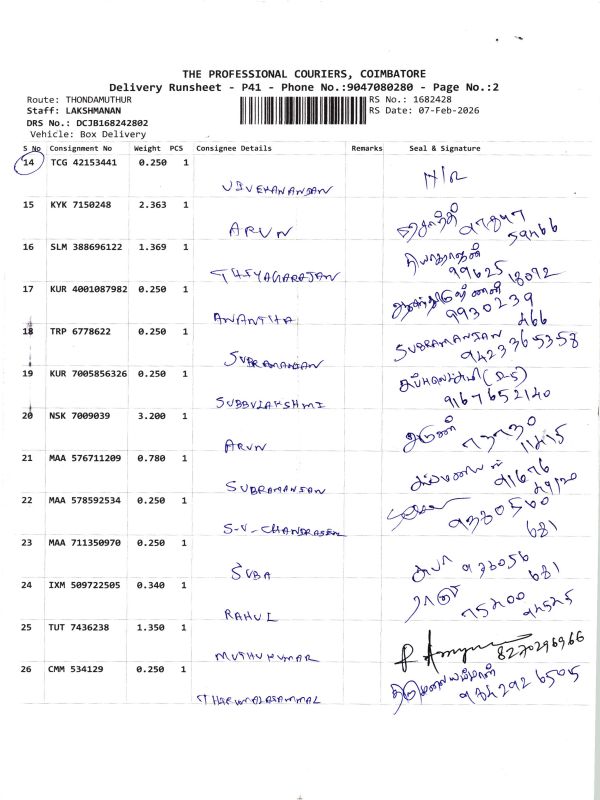 THE PROFESSIONAL COURIERS, COIMBATORE
Delivery Runsheet - P41 - Phone No.:9047080280 - Page No.:2
Route: THONDAMUTHUR RS No.: 1682428
Staff: LAKSHMANAN RS Date: 07-Feb-2026
DRS No.: DCJB168242802
Vehicle: Box Delivery
S No Consignment No Weight PCS Consignee Details Remarks Seal & Signature
14 TCG 42153441 0.250 1
VIVEKANANDAN
15 KYK 7150248 2.363 1
ARUN 59466
16 SLM 388696122 1.369 1
THIYAGARAJAN 99625 18092
17 KUR 4001087982 0.250 1
ANANTHA 9930239 466
18 TRP 6778622 0.250 1
SUBRAMANIAN SUBRAMANIAN 9423365358
19 KUR 7005856326 0.250 1
SUBBULAKSHMI 9167652140
20 NSK 7009039 3.200 1
ARUN அருண் 11415
21 MAA 576711209 0.780 1
SUBRAMANIAN 91676
22 MAA 578592534 0.250 1
S.V. CHANDRASEN 681
23 MAA 711350970 0.250 1
SUBA சுபா 681
24 IXM 509722505 0.340 1
RAHUL 75200 94525
25 TUT 7436238 1.350 1
MUTHUKUMAR 8270296966
26 CMM 534129 0.250 1
984292 6505